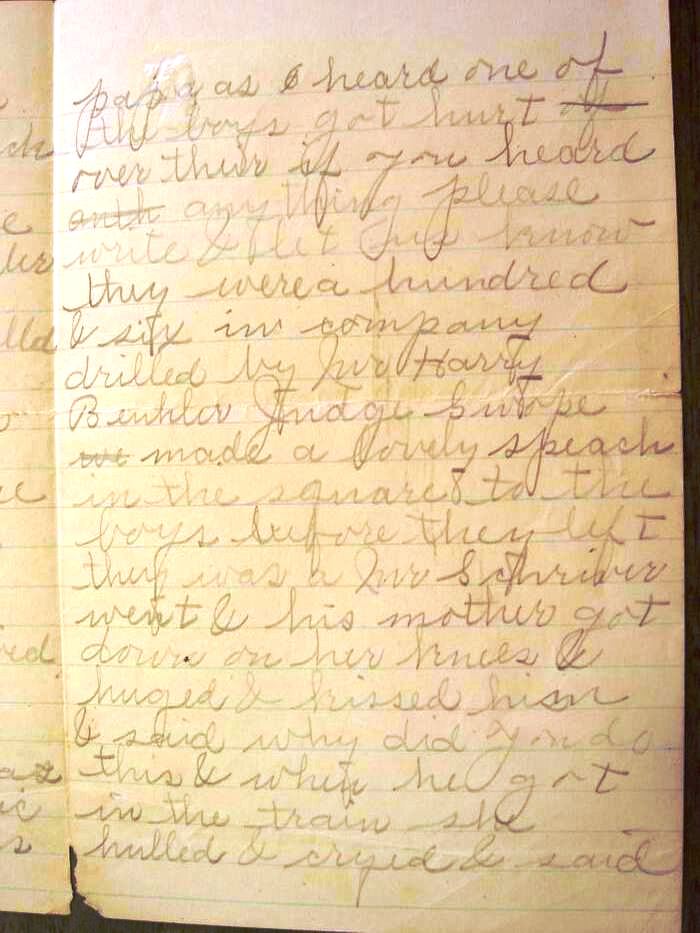 papa as I heard one of
the boys got hurt of
over their if you heard
anth anything please
write & let us know
they were a hundred
& six in company
drilled by Mr Harry
Judge Swope
we made a lovely speach
in the square & to the
boys before they left
they was a Mr Schriver
went & his mother got
down on her knees &
huged & kissed him
& said why did you do
this & when he got
in the train she
hulled & cryed & said